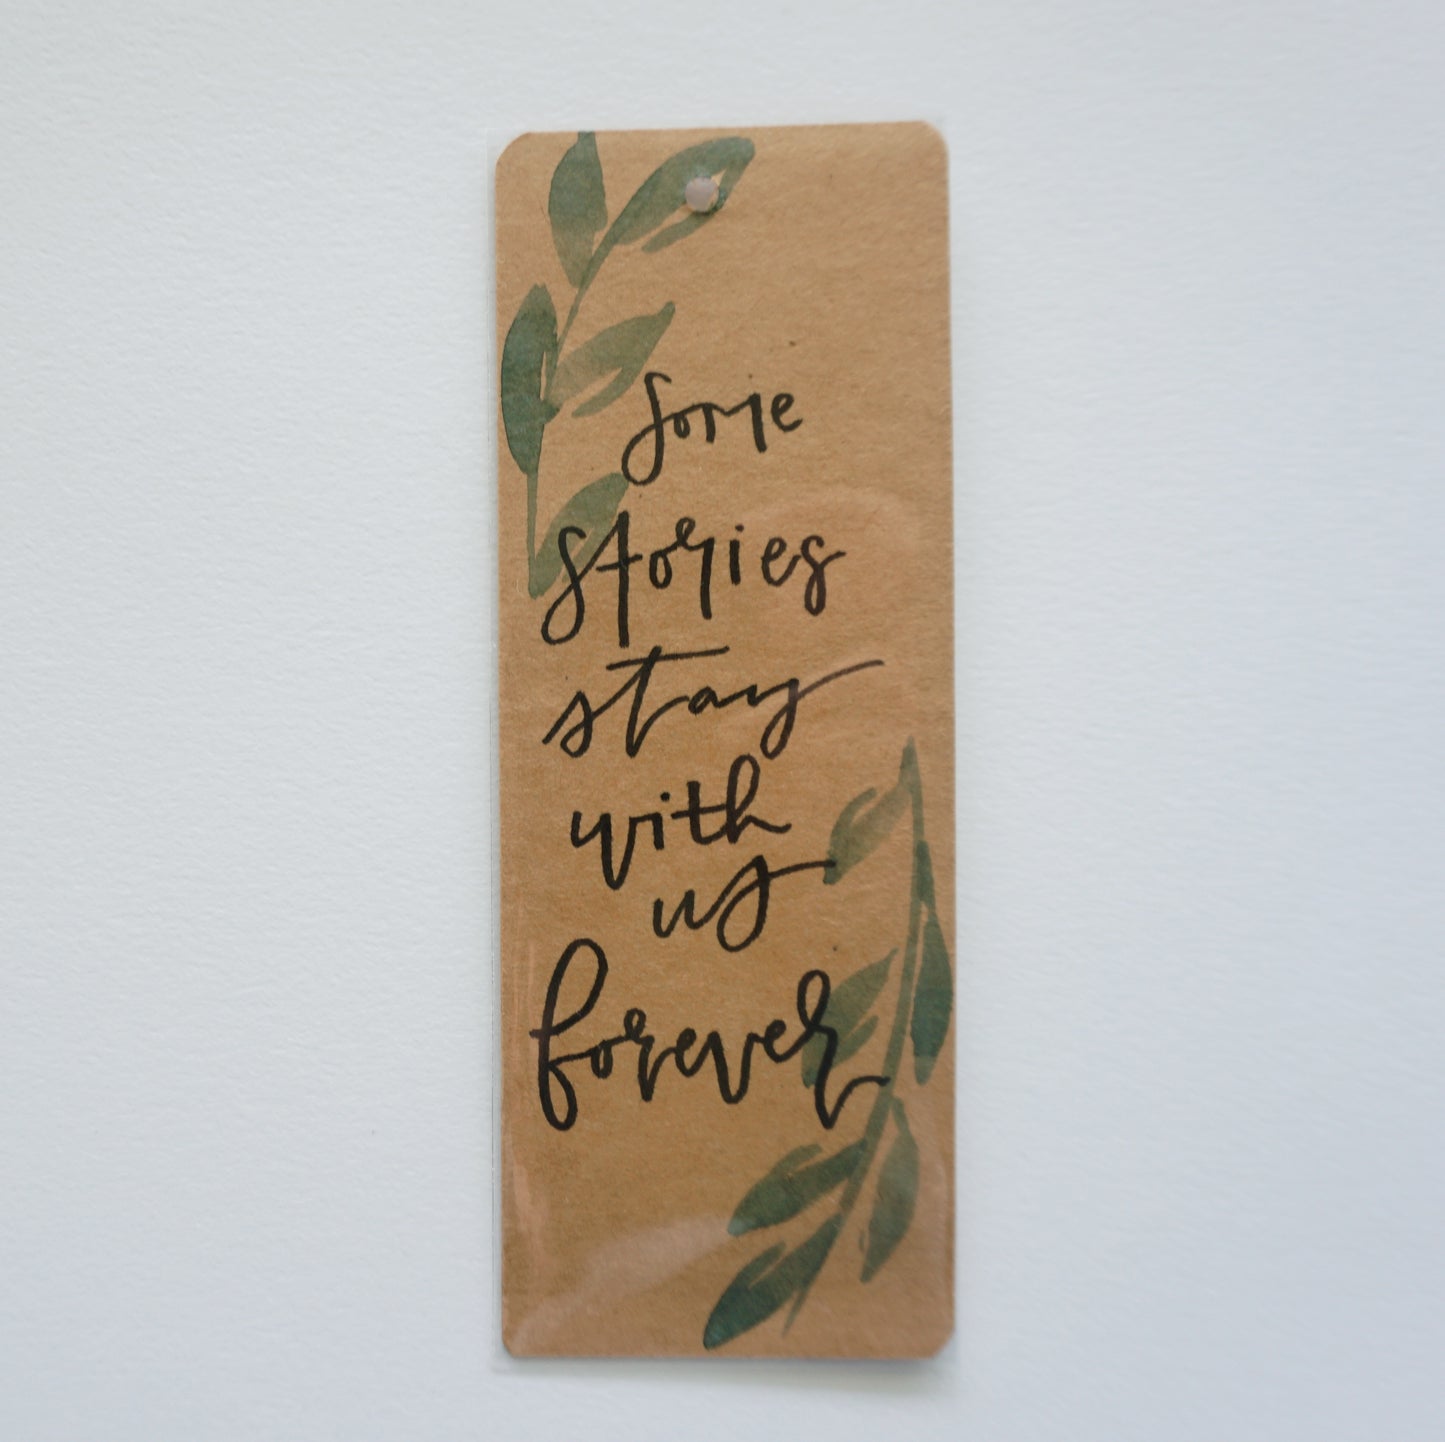 Some
stories
stay
with
us
forever